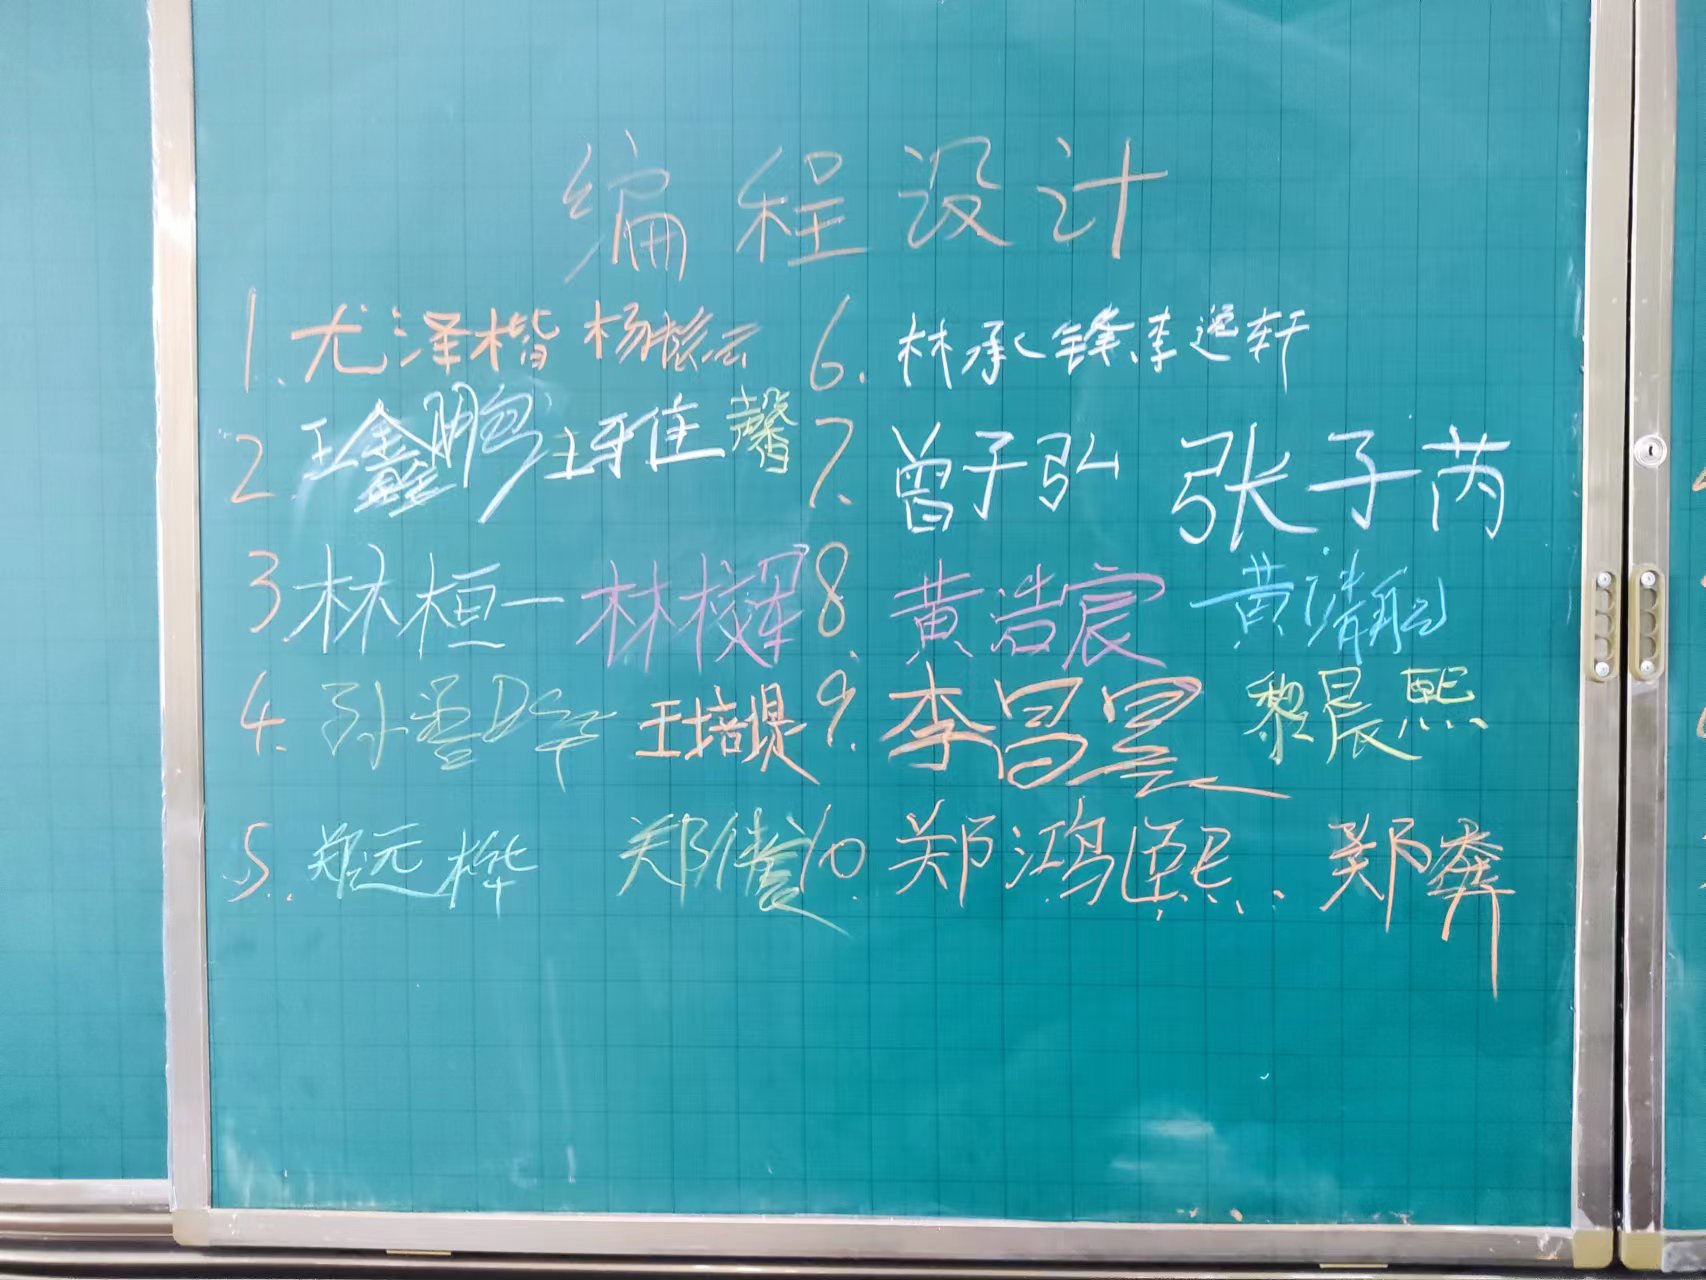 编程设计
1. 尤泽楷 杨彬云
2 王鑫鹏 王雅馨
3. 林桓一 林校军
4. 孙 王培堤
5. 郑远桦 郑
6. 林承锋 李逸轩
7. 曾子弘 张子芮
8. 黄浩宸 黄清
9. 李昌昱 黎晨熙
10. 郑鸿熙 郑